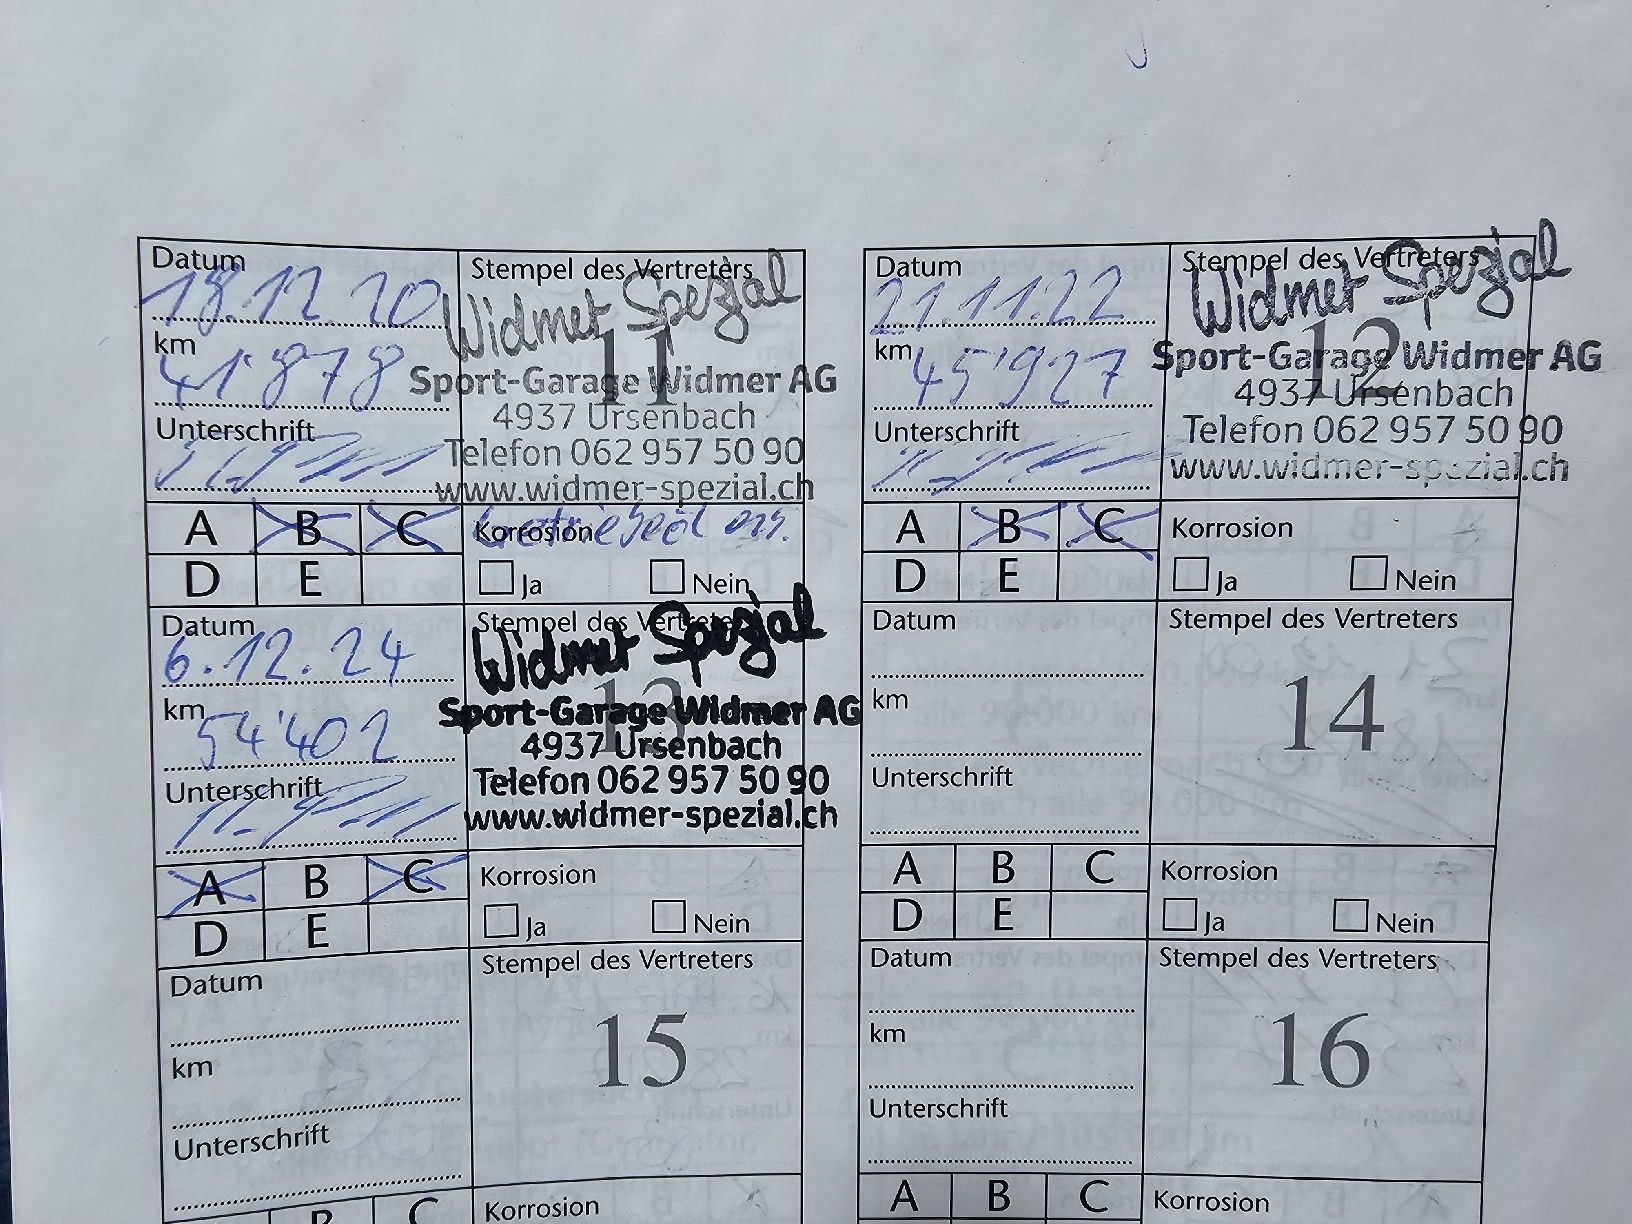 Datum
18.12.20
km
41'878
Unterschrift
Stempel des Vertreters
11
Widmer Spezial
Sport-Garage Widmer AG
4937 Ursenbach
Telefon 062 957 50 90
www.widmer-spezial.ch
A B C
D E
Korrosion
Getriebeöl ers.
Ja Nein
Datum
21.11.22
km
45'927
Unterschrift
Stempel des Vertreters
12
Widmer Spezial
Sport-Garage Widmer AG
4937 Ursenbach
Telefon 062 957 50 90
www.widmer-spezial.ch
A B C
D E
Korrosion
Ja Nein
Datum
6.12.24
km
54'402
Unterschrift
Stempel des Vertreters
13
Widmer Spezial
Sport-Garage Widmer AG
4937 Ursenbach
Telefon 062 957 50 90
www.widmer-spezial.ch
A B C
D E
Korrosion
Ja Nein
Datum
km
Unterschrift
Stempel des Vertreters
14
A B C
D E
Korrosion
Ja Nein
Datum
km
Unterschrift
Stempel des Vertreters
15
B C
Korrosion
Datum
km
Unterschrift
Stempel des Vertreters
16
A B C
Korrosion